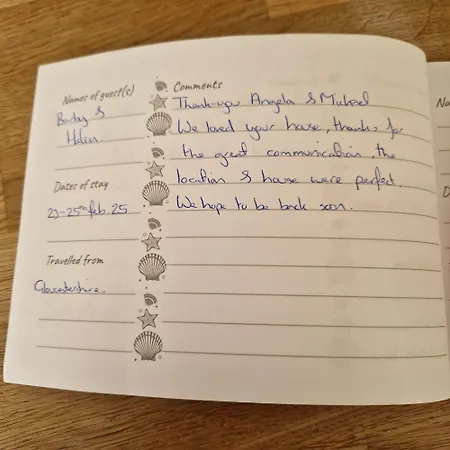 Names of guest(s)
& 
Helen
Dates of stay
-25th feb. 25
Travelled from
Gloucestershire.
Comments
Thank-you Angela & Michael
We loved your house, thanks for
the great communication, the
location & house were perfect.
We hope to be back soon.
Na
D